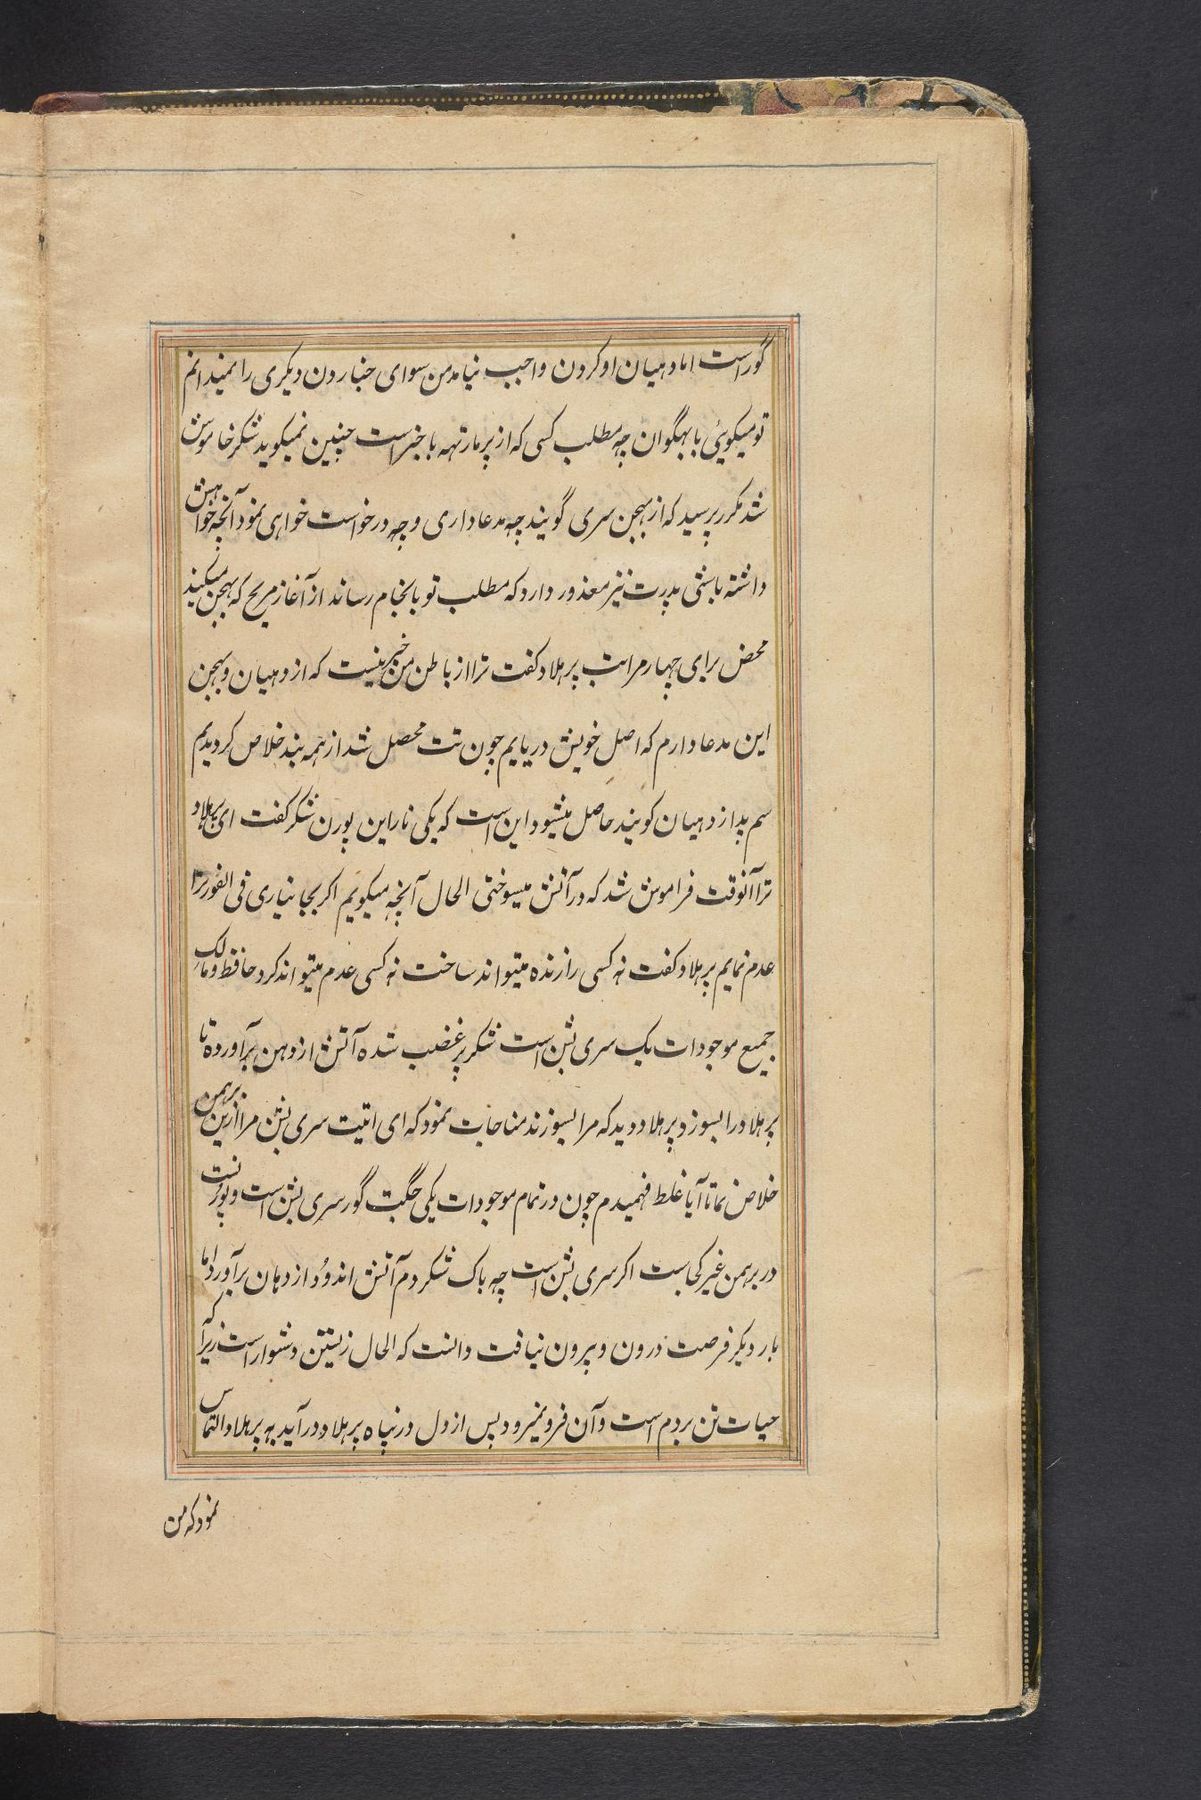 گور است اما دهیان او کردن واجب نیامد من سوای جناردن دیکری را نمیدانم
تو میکویئی با بهگوان چه مطلب کسی که از پرمارتهه باخبر است چنین نمیکوید شکر خاموش
شد مکرر پرسید که از بهجن سری گویند چه مدعا داری و چه درخواست خواهی نمود آنچه خواهش
داشته باشی پدرت نیز معذور دارد که مطلب تو بانجام رساند از آغاز که بهجن میکنید
محض برای چهار مراتب پرهلاد کفت ترا از باطن من خبر نیست که از دهیان و بهجن
این مدعا دارم که اصل خویش دریابم چون تت محصل شد از همه بند خلاص کردیدم
سم پد از دهیان کویند حاصل میشود این است که یکی ناراین پورن شکر کفت ای پرهلاد
ترا آنوقت فراموش شد که در آتش میسوختی الحال آنچه میکویم اکر بجا نیاری فی الفور ترا
عدم نمایم پرهلاد کفت نه کسی را زنده میتواند ساخت نه کسی عدم میتواند کرد حافظ و مالک
جمیع موجودات یک سری بشن است شکر پر غضب شده آتش از دهن برآورده تا
پرهلاد را بسوزد پرهلاد دید که مرا بسوزند مناجات نمود که ای اتیت سری بشن مرا ازین برهمن
خلاص نما تا آیا غلط فهمیدم چون در تمام موجودات یکی جکت گور سری بشن است و پورنست
در برهمن غیر کی است اکر سری بشن است چه باک شکر دم آتش اندود از دهان برآورد اما
بار دیکر فرصت درون و بیرون نیافت دانست که الحال زیستن دشوار است زیرا که
حیات تن بردم است و آن فرو نمیرود پس از دل در پناه پرهلاد درآید به پرهلاد التماس
نمود که من